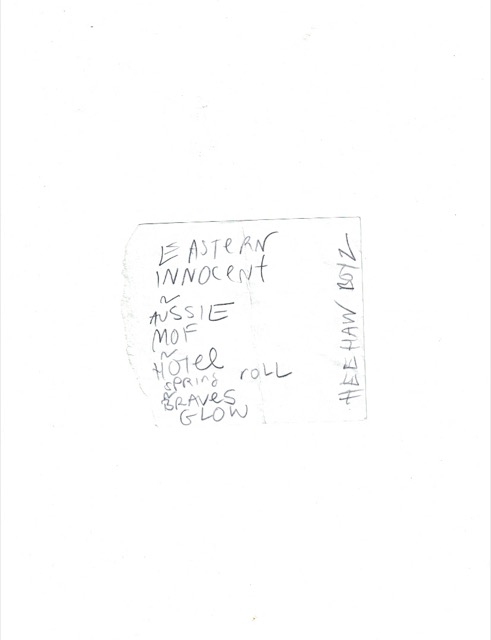 EASTERN
INNOCENT
~
AUSSIE
MOF
~
HOTEL
SPRING ROLL
~
BRAVES
GLOW
HEEHAW BOYZ